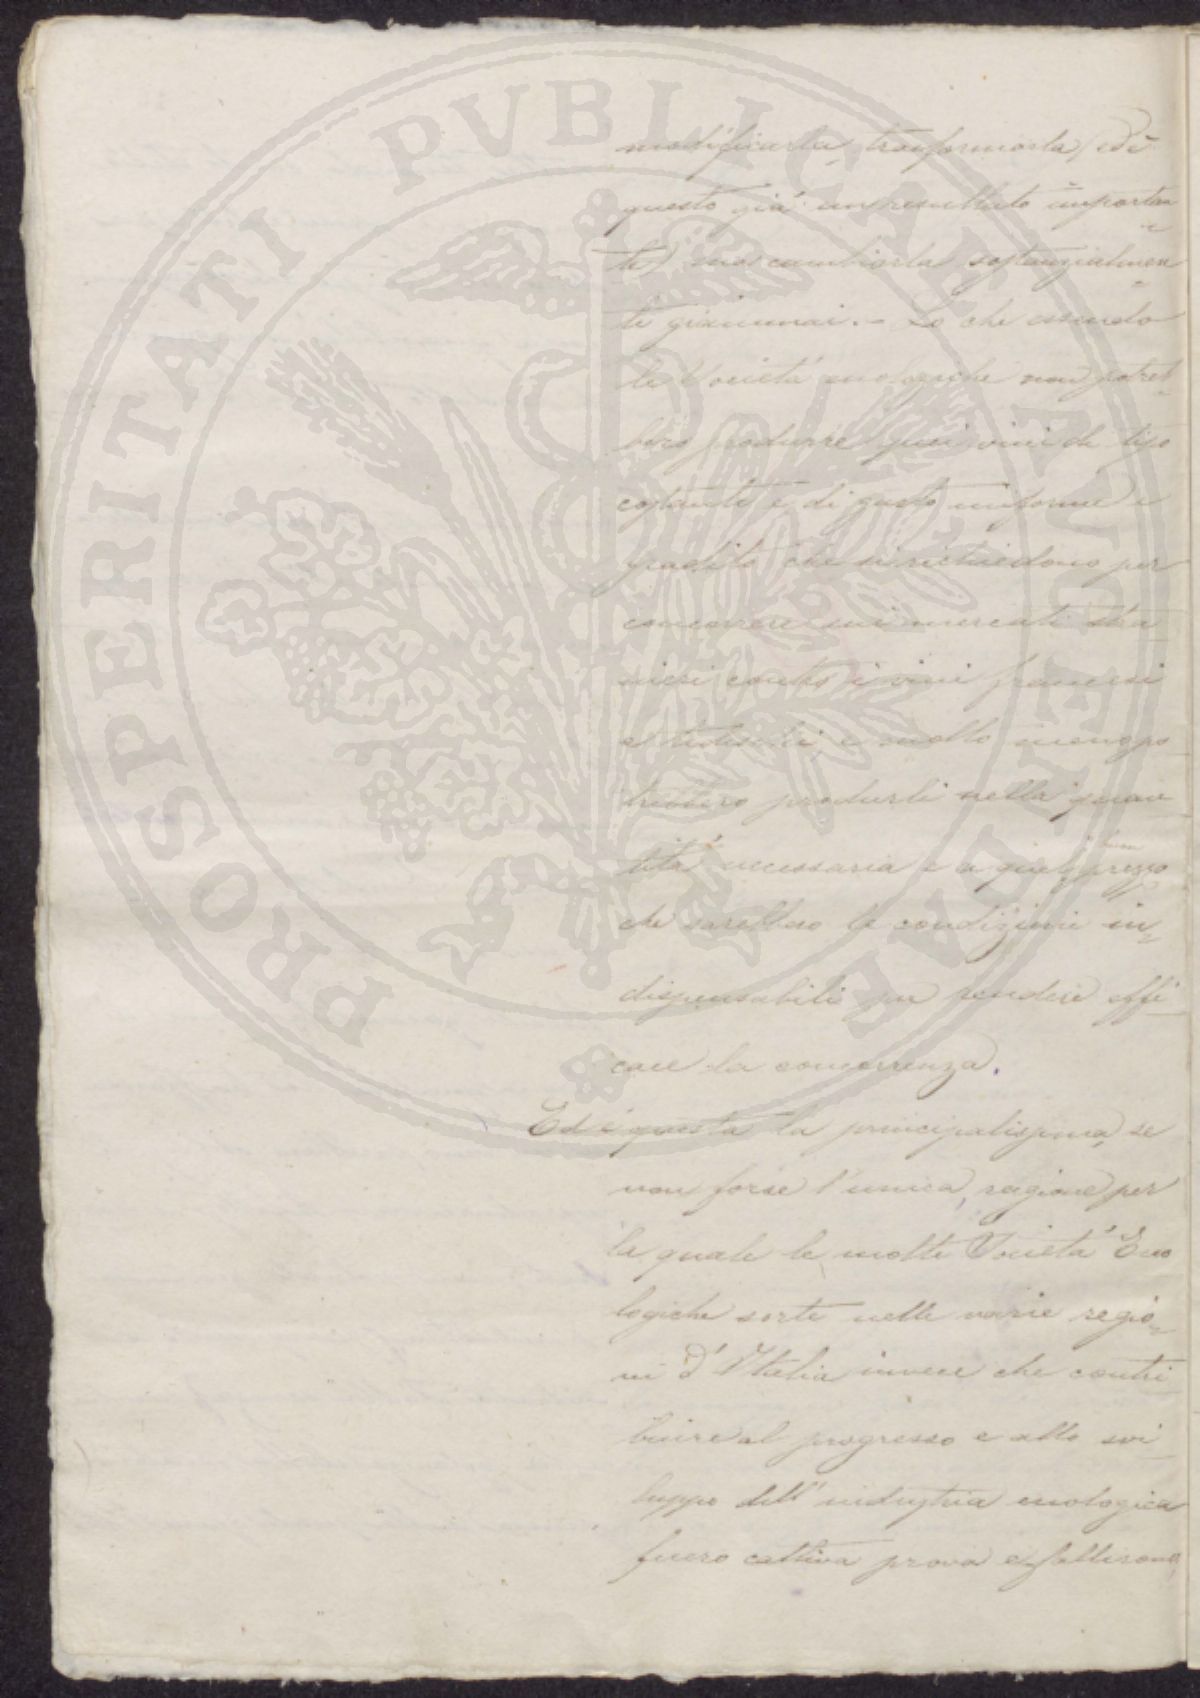 modificarla, trasformarla, (ed è
questo già un resultato importan
te) ma cambiarla sostanzialmen
te giammai. - Lo che essendo
le Società enologiche non potreb
bero produrre quei vini di tipo
costante e di gusto uniforme e
gradito che si richiedono per
concorrere sui mercati stra
nieri contro i vini francesi
e tedeschi, e molto meno po
trebbero produrli nella quan
tità necessaria e a quel prezzo
che sarebbero le condizioni in
dispensabili per rendere effi
cace la concorrenza.
Ed è questa la principalissima, se
non forse l'unica, ragione per
la quale le molte Società Eno
logiche sorte nelle varie regio
ni d'Italia invece che contri
buire al progresso e allo svi
luppo dell'industria enologica
fecero cattiva prova e fallirono,
PROSPERITATI PVBLICAE AVGENDAE